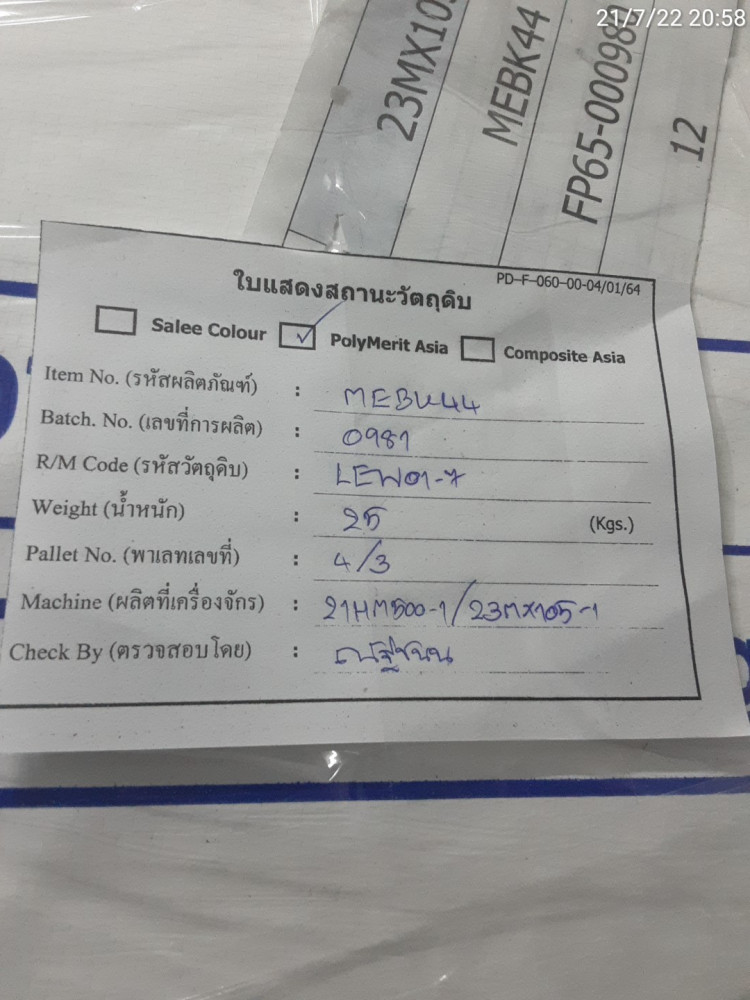 21/7/22 20:58
23MX10
MEBK44
FP65-00098
12
PD-F-060-00-04/01/64
ใบแสดงสถานะวัตถุดิบ
Salee Colour ✓ PolyMerit Asia Composite Asia
Item No. (รหัสผลิตภัณฑ์) : MEBK44
Batch. No. (เลขที่การผลิต) : 0981
R/M Code (รหัสวัตถุดิบ) : LEW01-7
Weight (น้ำหนัก) : 25 (Kgs.)
Pallet No. (พาเลทเลขที่) : 4/3
Machine (ผลิตที่เครื่องจักร) : 21HM500-1/23MX105-1
Check By (ตรวจสอบโดย) :